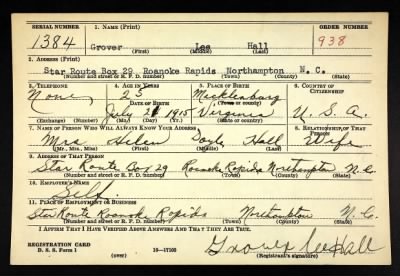 SERIAL NUMBER 1. NAME (Print) ORDER NUMBER
1384 Grover Lee Hall 938
(First) (Middle) (Last)
2. ADDRESS (Print)
Star Route Box 29 Roanoke Rapids Northampton N. C.
(Number and street or R. F. D. number) (Town) (County) (State)
3. TELEPHONE 4. AGE IN YEARS 5. PLACE OF BIRTH 6. COUNTRY OF CITIZENSHIP
None 25 Mecklenburg
DATE OF BIRTH (Town or county)
July 21 1915 Virginia U. S. A.
(Exchange) (Number) (Mo.) (Day) (Yr.) (State or country)
7. NAME OF PERSON WHO WILL ALWAYS KNOW YOUR ADDRESS 8. RELATIONSHIP OF THAT PERSON
Mrs Helen Doyle Hall Wife
(Mr., Mrs., Miss) (First) (Middle) (Last)
9. ADDRESS OF THAT PERSON
Star Route Box 29 Roanoke Rapids Northampton N. C.
(Number and street or R. F. D. number) (Town) (County) (State)
10. EMPLOYER'S NAME
Self.
11. PLACE OF EMPLOYMENT OR BUSINESS
Star Route Roanoke Rapids Northampton N. C.
(Number and street or R. F. D. number) (Town) (County) (State)
I AFFIRM THAT I HAVE VERIFIED ABOVE ANSWERS AND THAT THEY ARE TRUE.
REGISTRATION CARD
D. S. S. Form 1 (over) 16—17105 Grover Lee Hall
(Registrant's signature)